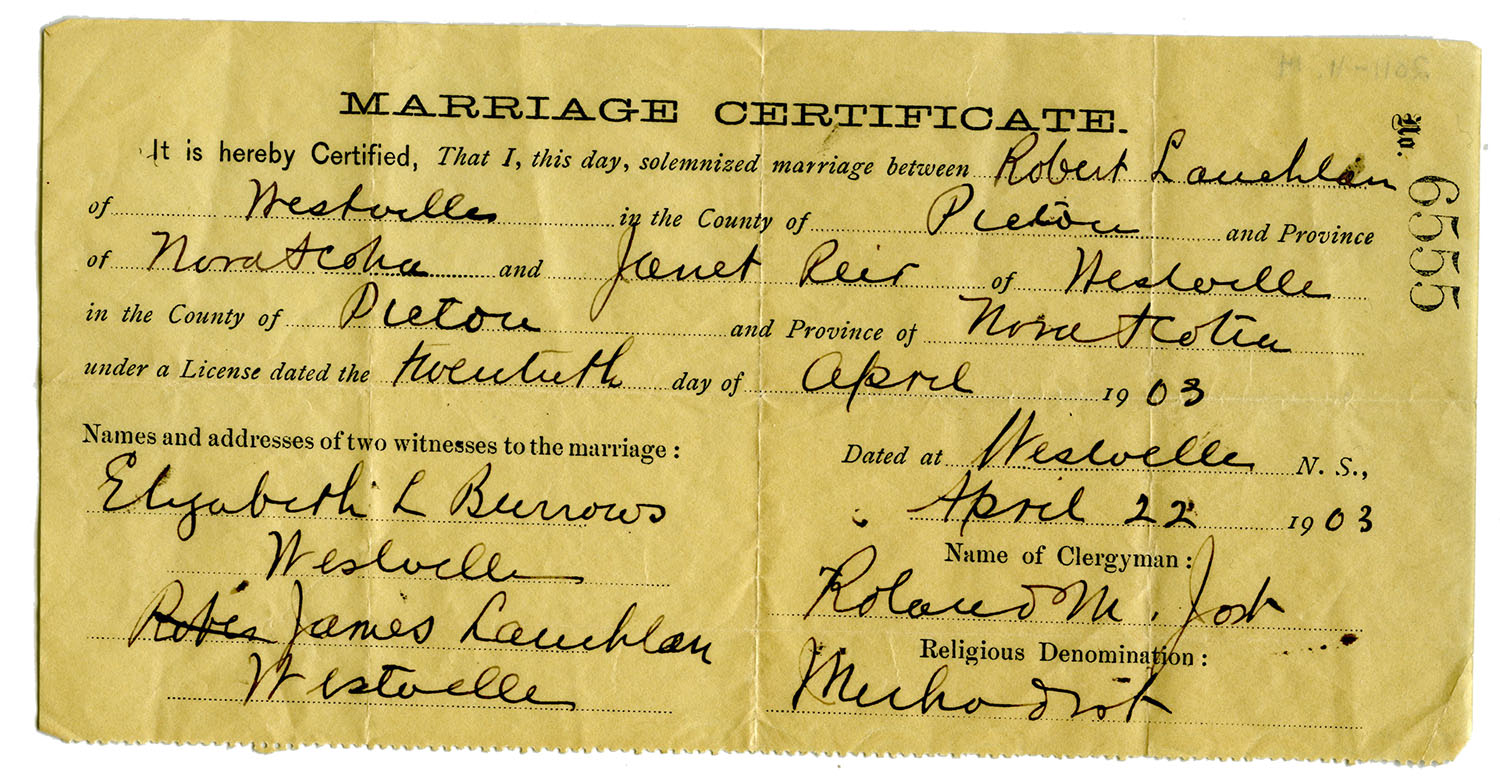 MARRIAGE CERTIFICATE.
It is hereby Certified, That I, this day, solemnized marriage between Robert Lauchlan
of Westville in the County of Pictou and Province
of Nova Scotia and Janet Reir of Westville
in the County of Pictou and Province of Nova Scotia
under a License dated the twentieth day of April 1903
Names and addresses of two witnesses to the marriage:
Elizabeth L Burrows
Westville
James Lauchlan
Westville
Dated at Westville N. S.,
April 22 1903
Name of Clergyman:
Roland M. Jost
Religious Denomination:
Methodist
No. 6555